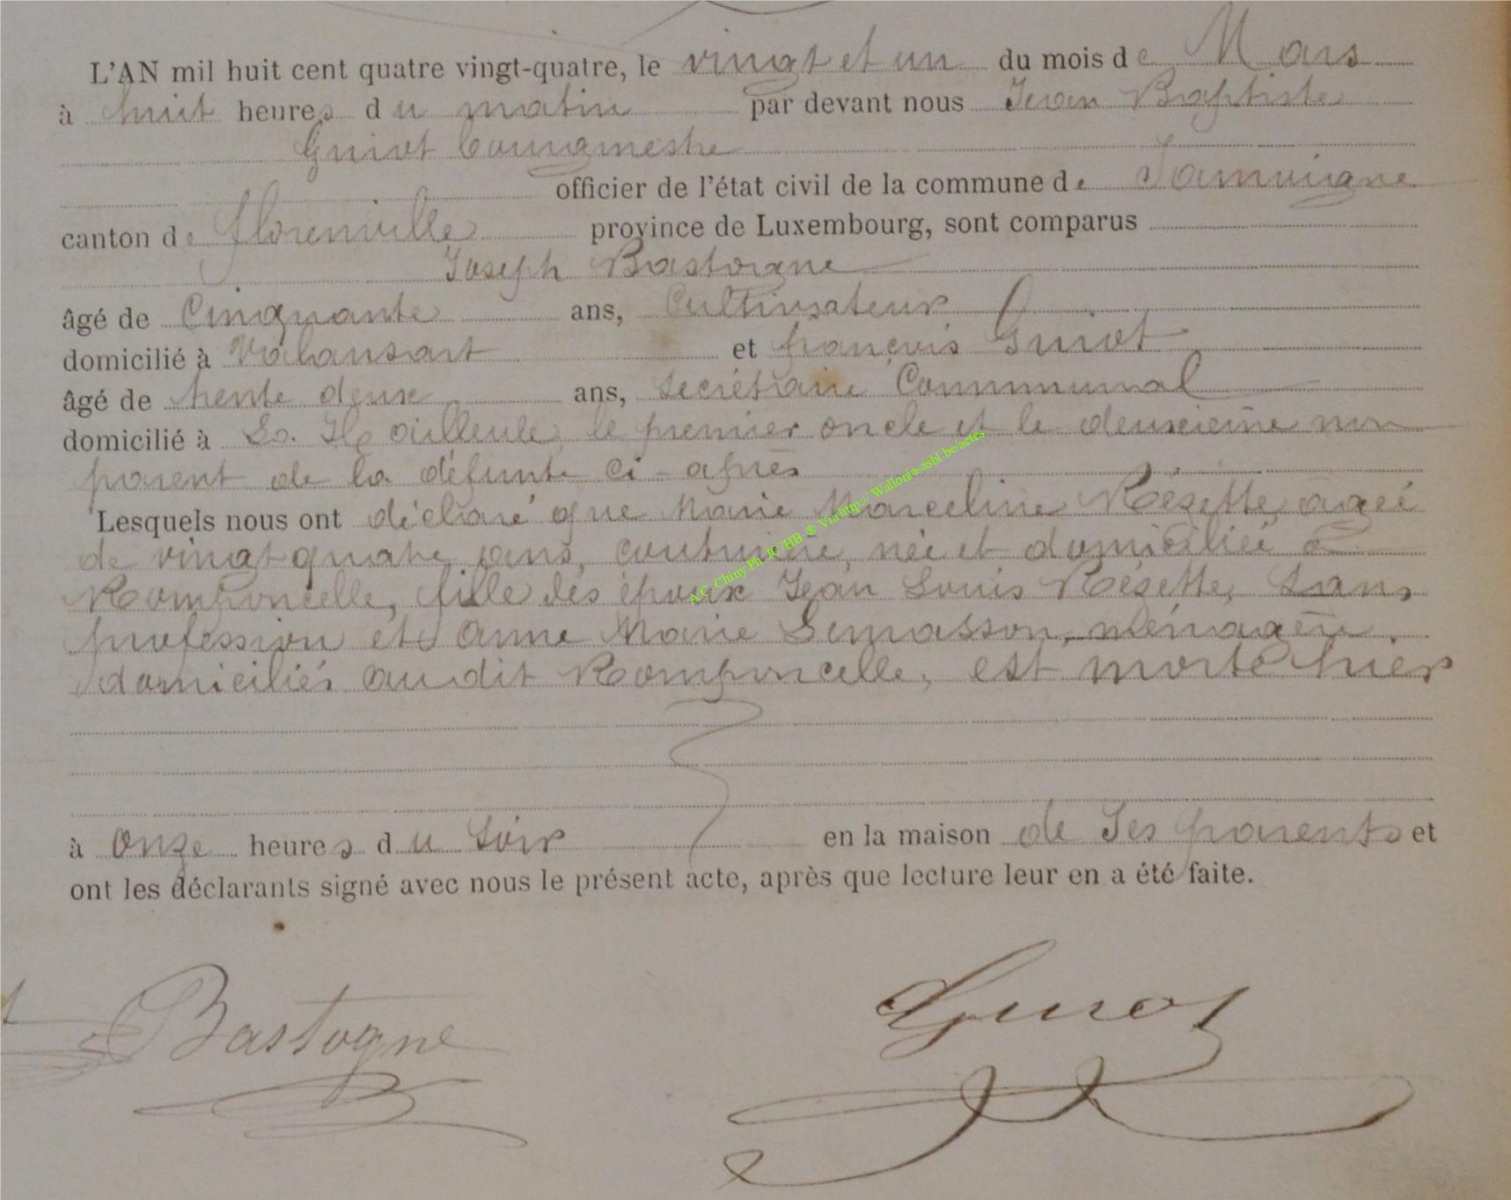 L'AN mil huit cent quatre vingt-quatre, le vingt et un du mois de Mars
à huit heures du matin par devant nous Jean Baptiste
Guiot bourgmestre
officier de l'état civil de la commune de Jamoigne
canton de florenville province de Luxembourg, sont comparus
Joseph Bastogne
âgé de Cinquante ans, Cultivateur
domicilié à Valansart et françois Guiot
âgé de trente deux ans, Secrétaire Communal
domicilié à La Hailleule, le premier oncle et le deuxième non
parent de la défunte ci-après
Lesquels nous ont déclaré que Marie Marceline Rézette, agée
de vingt quatre ans, couturière, née et domiciliée à
Romponcelle, fille des époux Jean Louis Rézette, Sans
profession et Anne Marie Lemasson, ménagère,
domiciliés au dit Romponcelle, est morte hier
à Onze heures du Soir en la maison de Ses parents et
ont les déclarants signé avec nous le présent acte, après que lecture leur en a été faite.
Bastogne Guiot